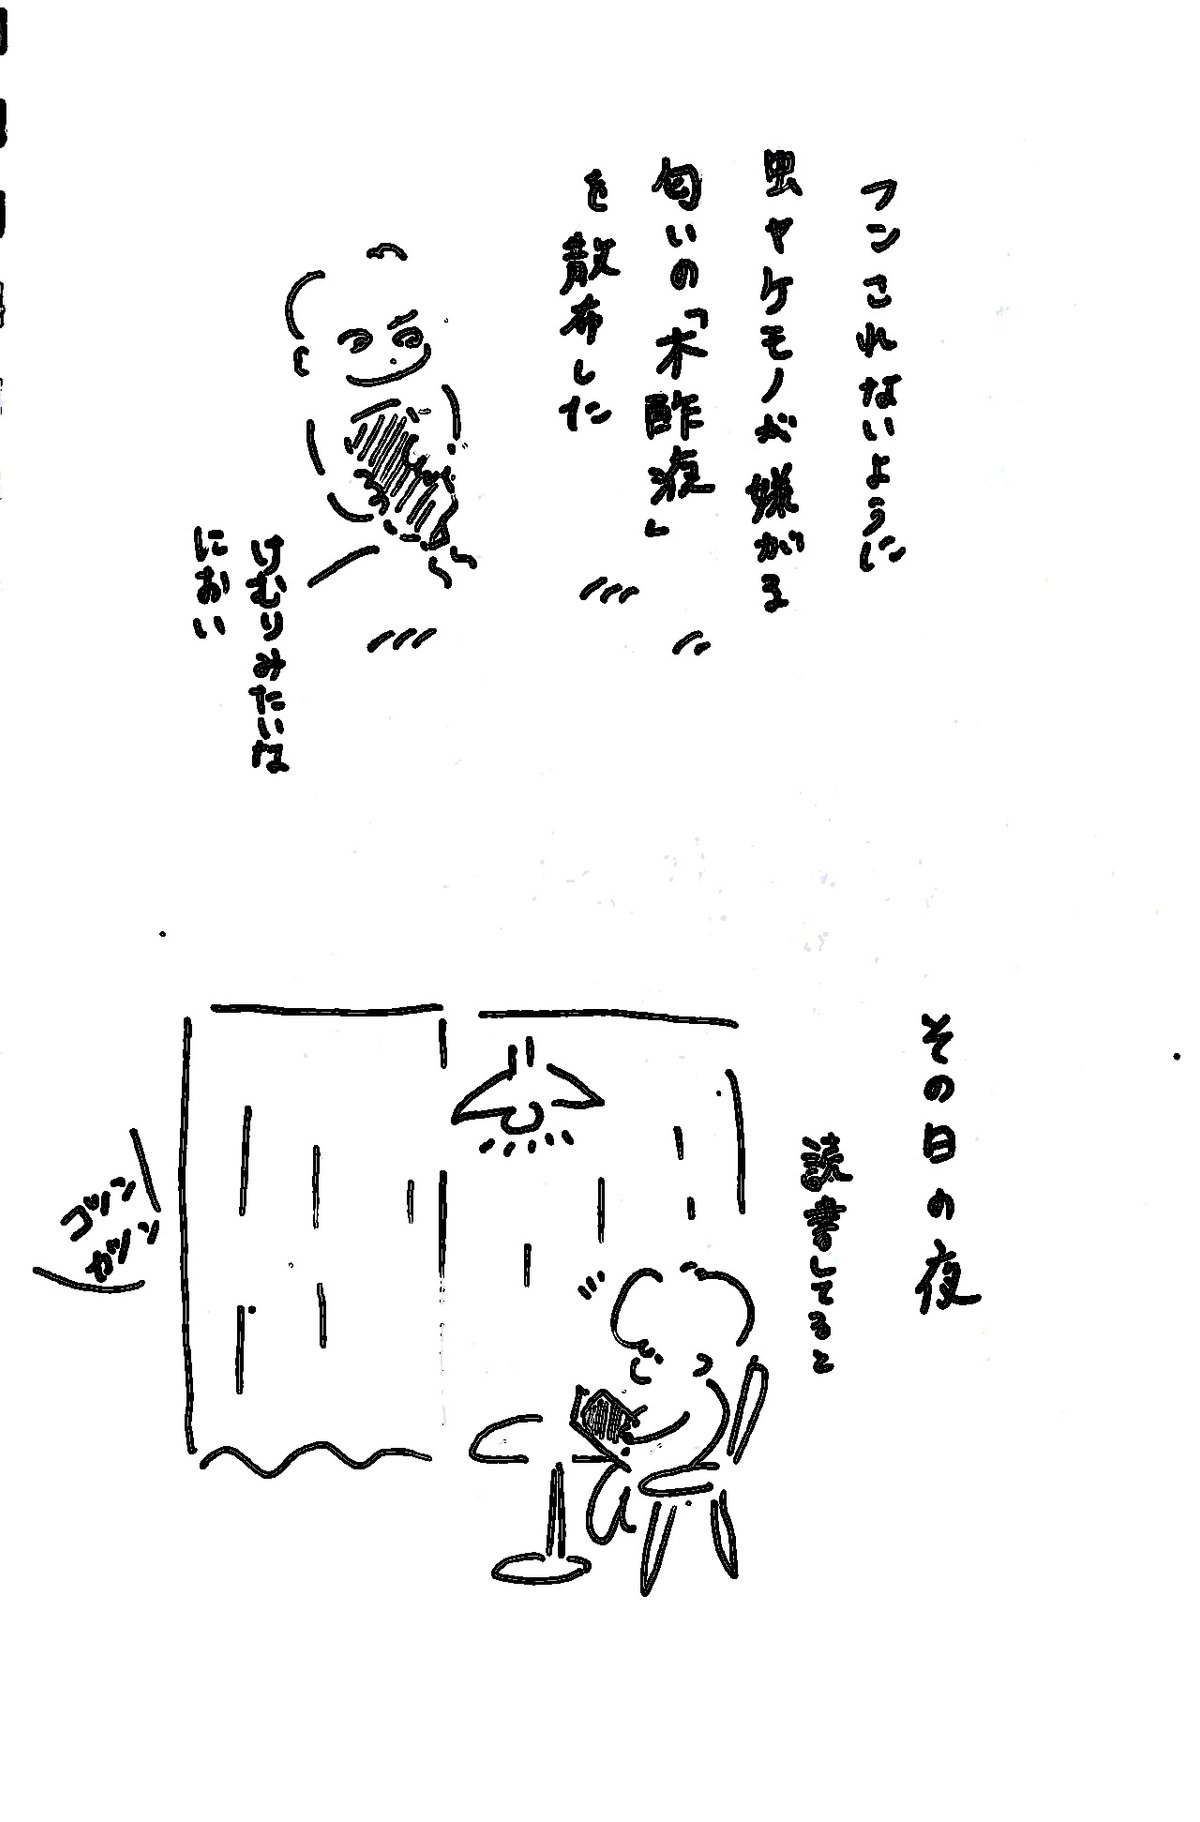 フンされないように
虫ヤケモノが嫌がる
匂いの「木酢液」
を散布した
けむりみたいな
におい
その日の夜
読書してると
コツン
ガツン